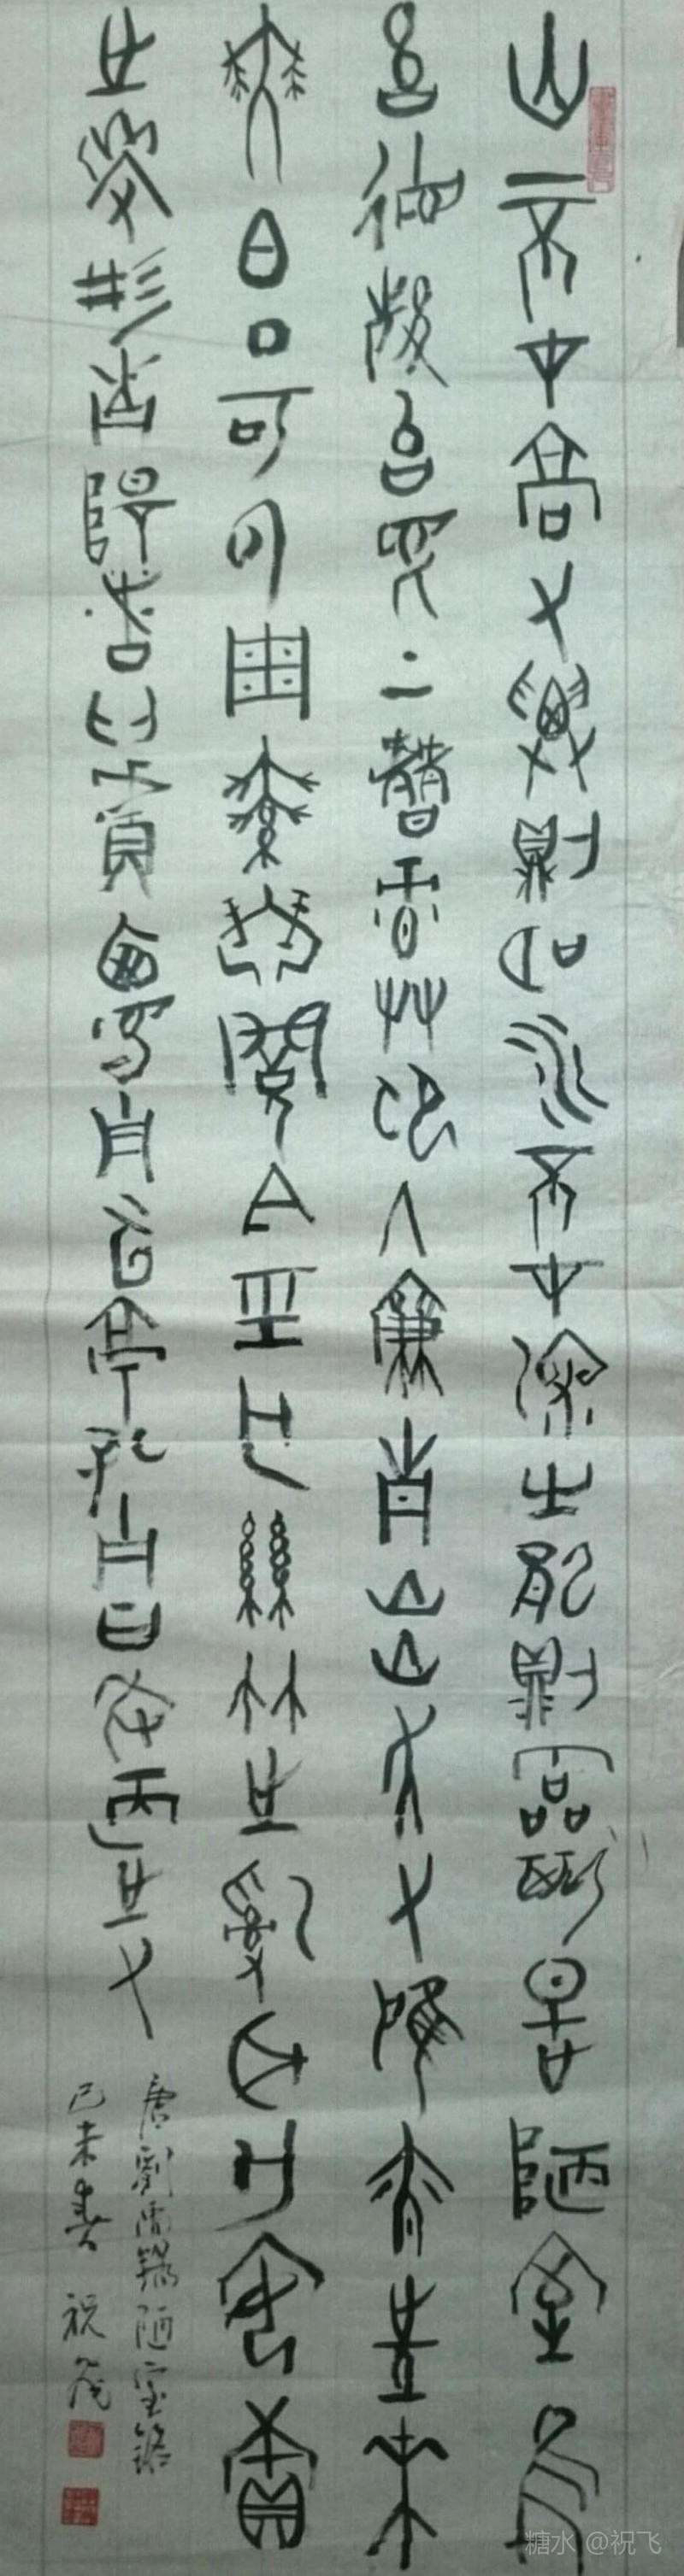 山不在高有僊則名水不在深有龍則靈斯是陋室惟
吾德馨苔痕上階綠草色入簾青談笑有鴻儒往來
無白丁可以調素琴閱金經無絲竹之亂耳無案牘
之勞形南陽諸葛廬西蜀子雲亭孔子曰何陋之有
唐劉禹錫陋室銘
己未春 祝飛
糖水 @祝飞